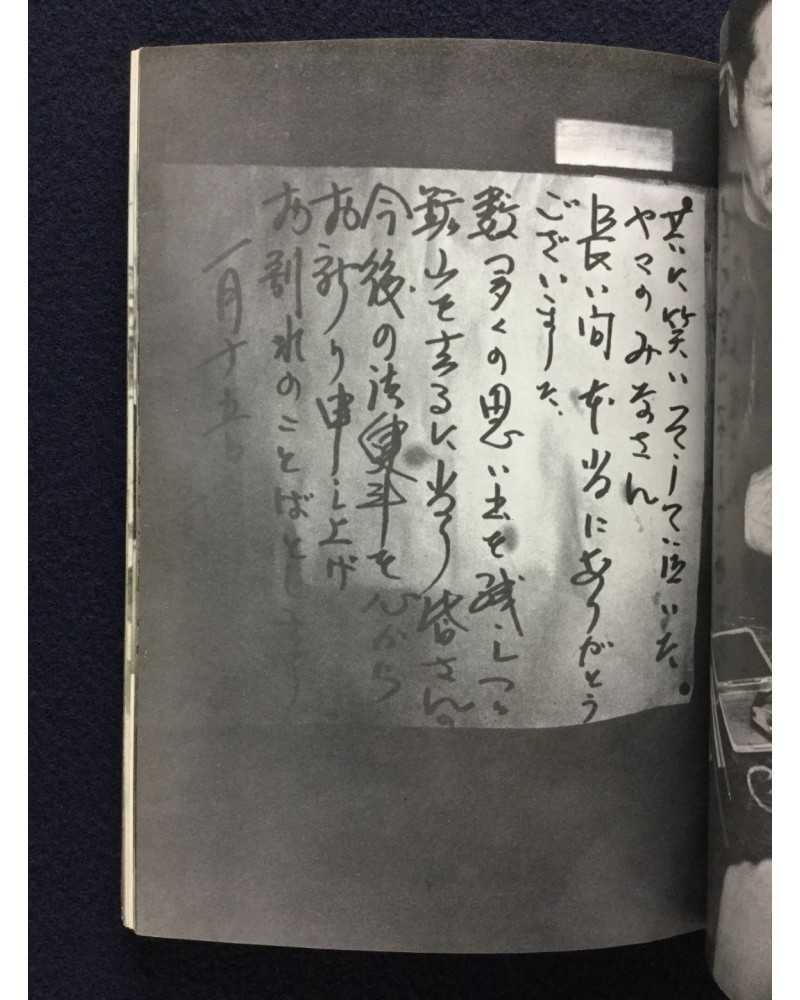 共に笑いそして泣いた。
ヤマのみなさん
長い間本当にありがとう
ございました、
数多くの思い出を残しつゝ
山を去るに当り皆さんの
今後の御健斗を心から
お祈り申し上げ
お別れのことばとします
一月十五日